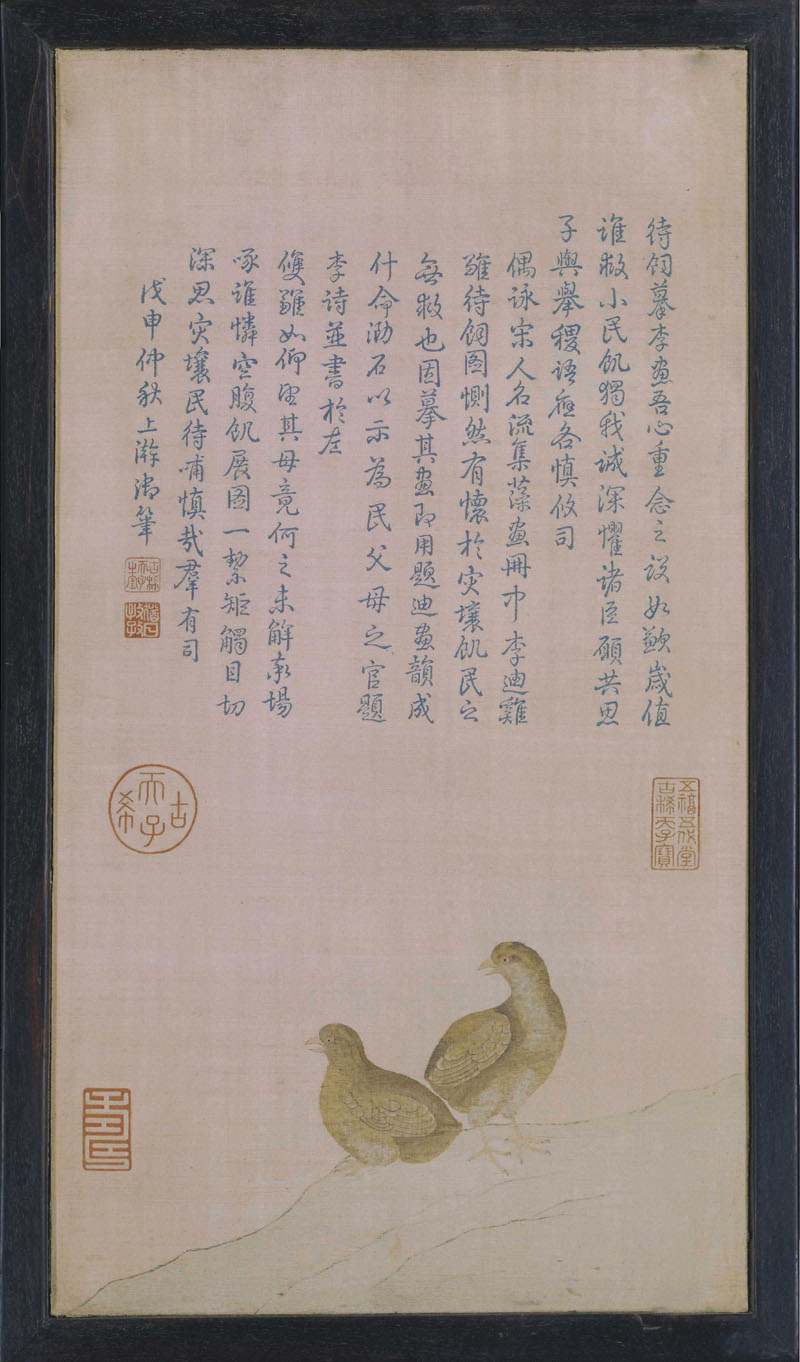 待飼摹李畫吾心重念之設如歉歲值
誰救小民飢獨我誠深懼諸臣願共思
子輿舉稷語應各慎攸司
偶詠宋人名流集藻畫冊中李迪雞
雛待飼圖惻然有懷於灾壤飢民之
無救也因摹其畫即用題迪畫韻成
什命泐石以示為民父母之官題
李詩並書於左
雙雛如仰望其母竟何之未解奔場
啄誰憐空腹飢展圖一絜矩觸目切
深思灾壤民待哺慎哉羣有司
戊申仲秋上澣御筆
古稀天子
猶日孜孜
五福五代堂古稀天子寶
古希天子